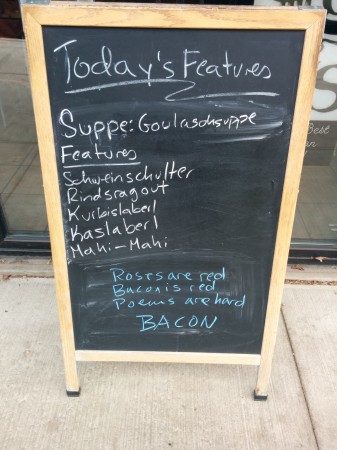 Today's Features
Suppe: Goulaschsuppe
Features
Schweinschulter
Rindsragout
Kurbislaberl
Kaslaberl
Mahi-Mahi
Roses are red
Bacon is red
Poems are hard
BACON
Best